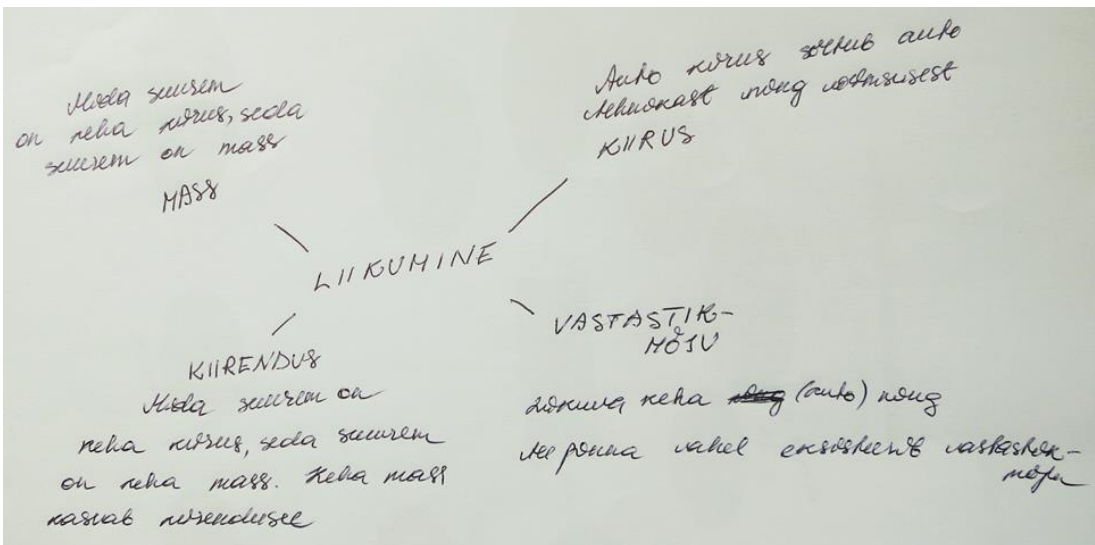 Mida suurem
on keha kiirus, seda
suurem on mass
MASS
Auto kiirus sõltub auto
tehnikast ning võimsusest
KIIRUS
LIIKUMINE
KIIRENDUS
Mida suurem on
keha kiirus, seda suurem
on keha mass. Keha mass
kasvab kiirendusel
VASTASTIK-
MÕJU
Liikuva keha (auto) ning
tee pinna vahel eksisteerib vastastik-
mõju